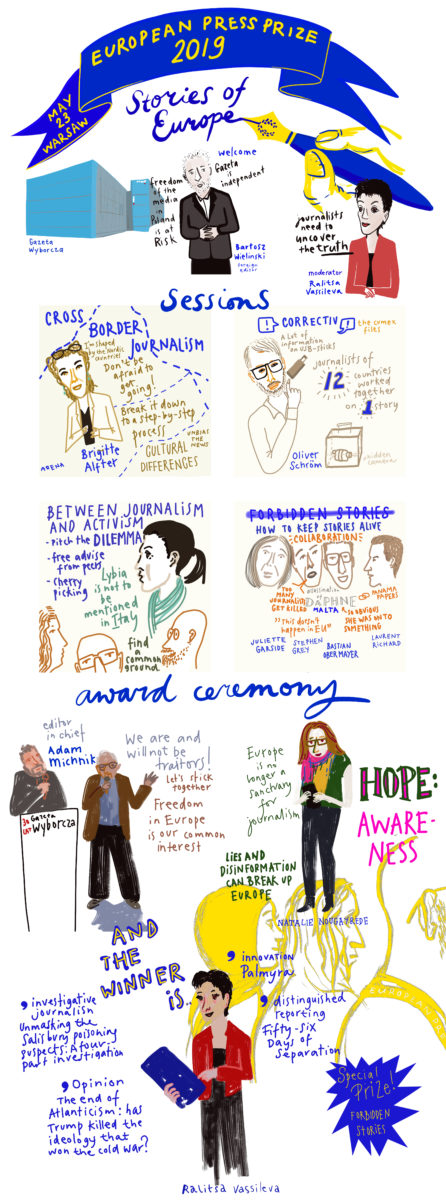 EUROPEAN PRESS PRIZE
2019
MAY
23
WARSAW
Stories of
Europe
Gazeta
Wyborcza
freedom
of the
media
in
Poland
is at
Risk
welcome
Gazeta
is
independent
Bartosz
Wielinski
foreign
editor
journalists
need to
uncover
the truth
moderator
Ralitsa
Vassileva
Sessions
CROSS
BORDER
JOURNALISM
I'm shaped
by the Nordic
countries
Don't be
afraid to
get
going!
Break it down
to a step-by-step
process
UNBIAS
THE
NEWS
CULTURAL
DIFFERENCES
Brigitte
Alfter
ARENA
CORRECTIV
the cumex
files
A Lot of
information
on USB-sticks
journalists of
12
countries
worked
together
on 1 story
Oliver
Schröm
hidden
camera
BETWEEN JOURNALISM
AND ACTIVISM
- Pitch the DILEMMA
- free advise
from peers
- cherry
picking
Lybia
is not to
be
mentioned
in Italy
find a
common
ground
FORBIDDEN STORIES
HOW TO KEEP STORIES ALIVE
COLLABORATION
TOO
MANY
JOURNALISTS
GET KILLED
assassination
DAPHNE
MALTA
PANAMA
PAPERS
"This doesn't
happen in EU"
so OBVIOUS
SHE WAS ONTO
SOMETHING
JULIETTE
GARSIDE
STEPHEN
GREY
BASTIAN
OBERMAYER
LAURENT
RICHARD
award ceremony
editor
in chief
Adam
Michnik
30 Gazeta
LAT Wyborcza
We are and
will not be
traitors!
Let's stick
together
Freedom
in Europe
is our common
interest
Europe
is no
longer a
sanctuary
for
journalism
HOPE:
AWARE-
NESS
LIES AND
DISINFORMATION
CAN BREAK UP
EUROPE
NATALIE NOUGAYREDE
AND
THE
WINNER
is..
innovation
Palmyra
investigative
journalism
Unmasking the
Salisbury poisoning
suspects: A four-
part investigation
distinguished
reporting
Fifty-six
Days of
Separation
Opinion
The end of
Atlanticism: has
Trump killed the
ideology that
won the cold war?
Special
Prize!
FORBIDDEN
STORIES
Ralitsa Vassileva